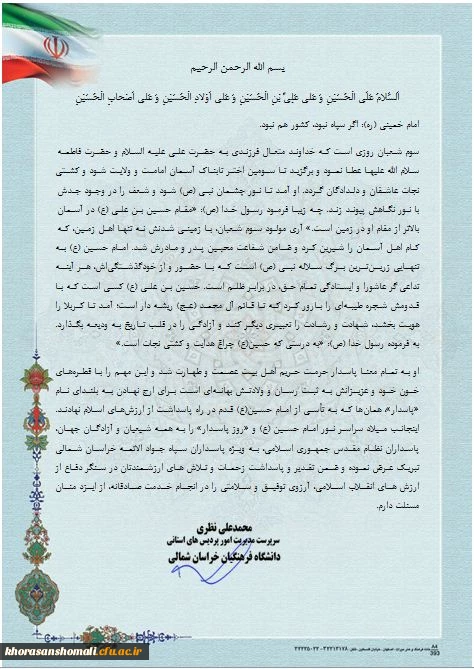 بسم الله الرحمن الرحیم
اَلسَّلامُ عَلَی الحُسَیْنِ وَ عَلی عَلِیِّ بْنِ الْحُسَیْنِ وَ عَلی اَوْلادِ الْحُسَیْنِ وَ عَلی اَصْحابِ الْحُسَیْنِ
امام خمینی (ره): اگر سپاه نبود، کشور هم نبود.
سوم شعبان روزی است که خداوند متعال فرزندی به حضرت علی علیه السلام و حضرت فاطمه
سلام الله علیها عطا نمود و برگزید تا سومین اختر تابناک آسمان امامت و ولایت شود و کشتی
نجات عاشقان و دلدادگان گردد. او آمد تا نور چشمان نبی (ص) شود و شعف را در وجود جدش
با نور نگاهش پیوند زند. چه زیبا فرمود رسول خدا (ص): «مقام حسین بن علی (ع) در آسمان
بالاتر از مقام او در زمین است.» آری مولود سوم شعبان، با زمینی شدنش نه تنها اهل زمین، که
کام اهل آسمان را شیرین کرد و ضامن شفاعت محبین پدر و مادرش شد. امام حسین (ع) به
تنهایی زرین‌ترین برگ سلاله نبی (ص) است که با حضور و از خودگذشتگی‌اش، هر آینه
تداعی گر عاشورا و ایستادگی تمام حق، در برابر ظلم است. حسین بن علی (ع) کسی است که با
قدومش شجره طیبه‌ای را بارور کرد که تا قائم آل محمد (عج) ریشه دار است؛ آمد تا کربلا را
هویت بخشد، شهادت و رشادت را تعبیری دیگر کند و آزادگی را در قلب تاریخ به ودیعه بگذارد.
به فرموده رسول خدا (ص): «به درستی که حسین(ع) چراغ هدایت و کشتی نجات است.»
او به تمام معنا پاسدار حرمت حریم اهل بیت عصمت و طهارت شد و این مهم را با قطره‌های
خون خود و عزیزانش به ثبت رساند و ولادتش بهانه‌ای است برای ارج نهادن به بلندای نام
«پاسدار»؛ همان‌ها که به تأسی از امام حسین(ع) قدم در راه پاسداشت از ارزش‌های اسلام نهادند.
اینجانب میلاد سراسر نور امام حسین (ع) و «روز پاسدار» را به همه شیعیان و آزادگان جهان،
پاسداران نظام مقدس جمهوری اسلامی، به ویژه پاسداران سپاه جواد الائمه خراسان شمالی
تبریک عرض نموده و ضمن تقدیر و پاسداشت زحمات و تلاش های ارزشمندتان در سنگر دفاع از
ارزش های انقلاب اسلامی، آرزوی توفیق و سلامتی را در انجام خدمت صادقانه، از ایزد منان
مسئلت دارم.
محمدعلی نظری
سرپرست مدیریت امور پردیس های استانی
دانشگاه فرهنگیان خراسان شمالی
khorasanshomali.cfu.ac.ir
A4
393